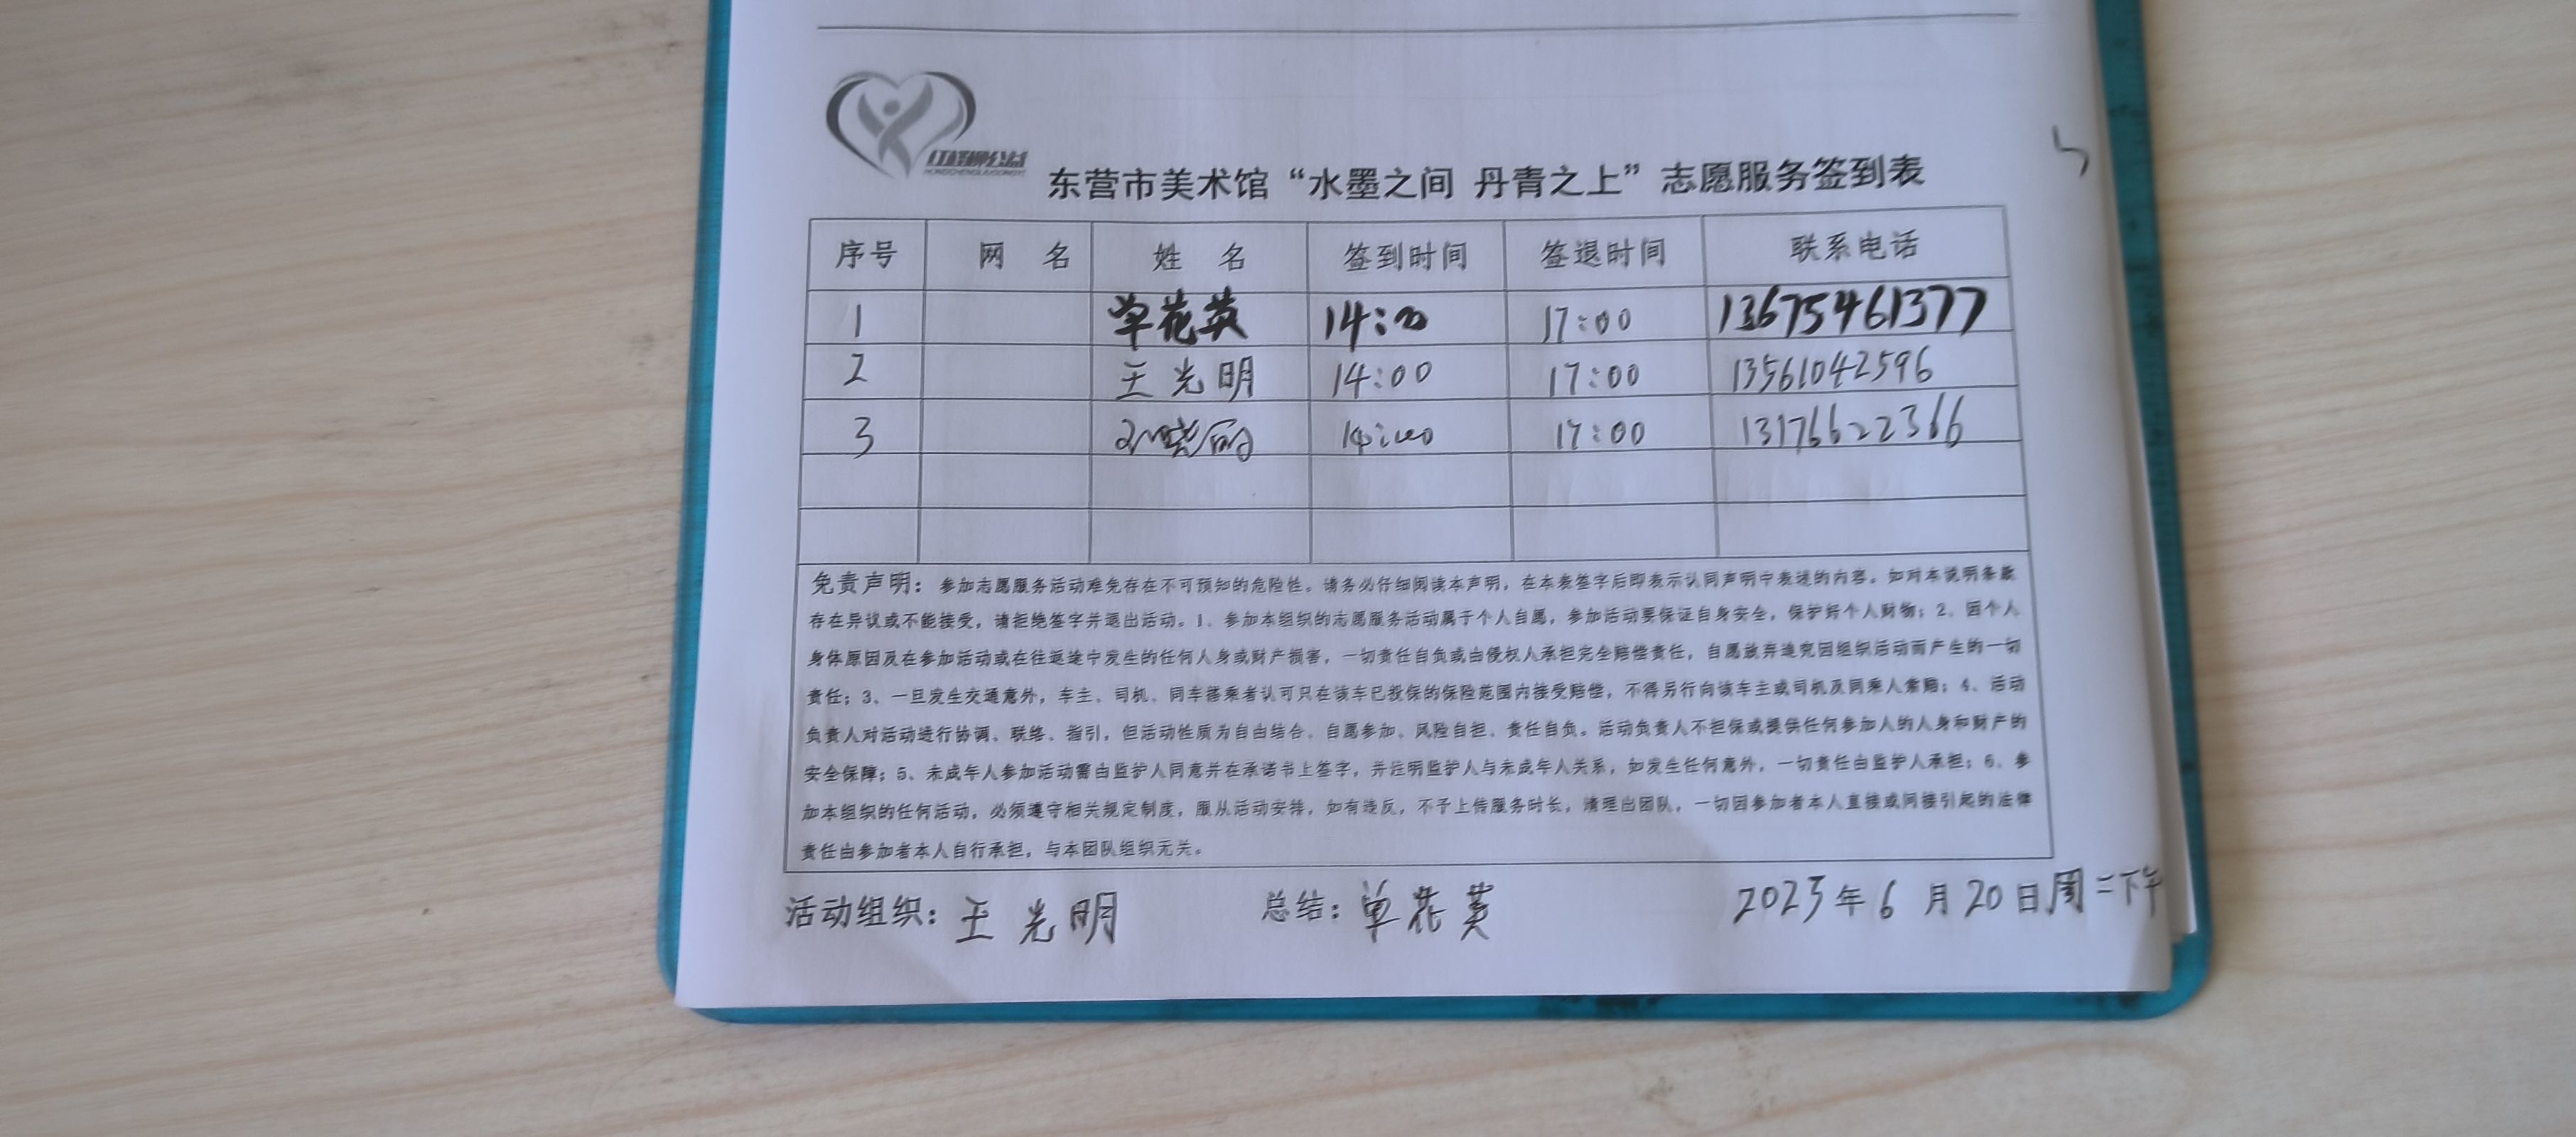 红城网公益
HONGCHENGLAXGONGYI
东营市美术馆“水墨之间 丹青之上”志愿服务签到表
序号 网 名 姓 名 签到时间 签退时间 联系电话
1 单花英 14:00 17:00 13675461377
2 王光明 14:00 17:00 13561042596
3 刘晓丽 14:00 17:00 13176622366
免责声明：参加志愿服务活动难免存在不可预知的危险性。请务必仔细阅读本声明，在本表签字后即表示认同声明中表述的内容。如对本说明条款
存在异议或不能接受，请拒绝签字并退出活动。1、参加本组织的志愿服务活动属于个人自愿，参加活动要保证自身安全，保护好个人财物；2、因个人
身体原因及在参加活动或在往返途中发生的任何人身或财产损害，一切责任自负或由侵权人承担完全赔偿责任，自愿放弃追究因组织活动而产生的一切
责任；3、一旦发生交通意外，车主、司机、同车搭乘者认可只在该车已投保的保险范围内接受赔偿，不得另行向该车主或司机及同乘人索赔；4、活动
负责人对活动进行协调、联络、指引，但活动性质为自由结合、自愿参加、风险自担、责任自负。活动负责人不担保或提供任何参加人的人身和财产的
安全保障；5、未成年人参加活动需由监护人同意并在承诺书上签字，并注明监护人与未成年人关系，如发生任何意外，一切责任由监护人承担；6、参
加本组织的任何活动，必须遵守相关规定制度，服从活动安排，如有违反，不予上传服务时长，清理出团队，一切因参加者本人直接或间接引起的法律
责任由参加者本人自行承担，与本团队组织无关。
活动组织：王光明 总结：单花英 2023年6月20日周二下午